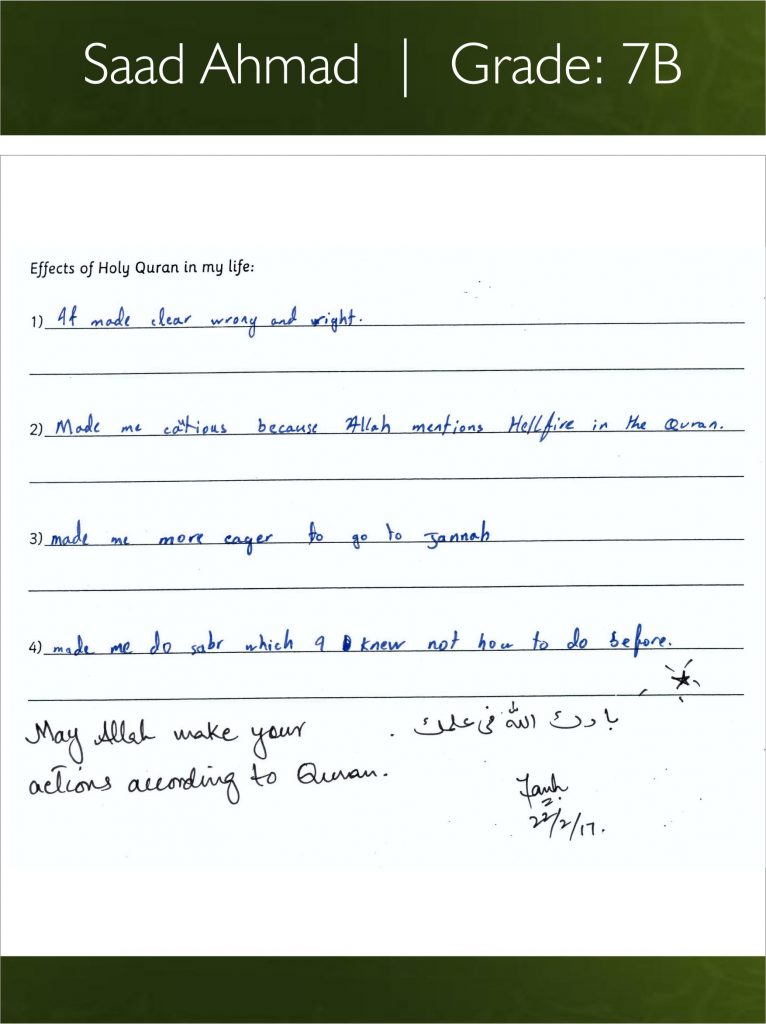 Saad Ahmad | Grade: 7B
Effects of Holy Quran in my life:
1) It made clear wrong and wright.
2) Made me catious because Allah mentions Hellfire in the Quran.
3) made me more eager to go to Jannah
4) made me do sabr which I knew not how to do before.
May Allah make your
actions according to Quran.
بارك الله في علمك .
22/2/17.